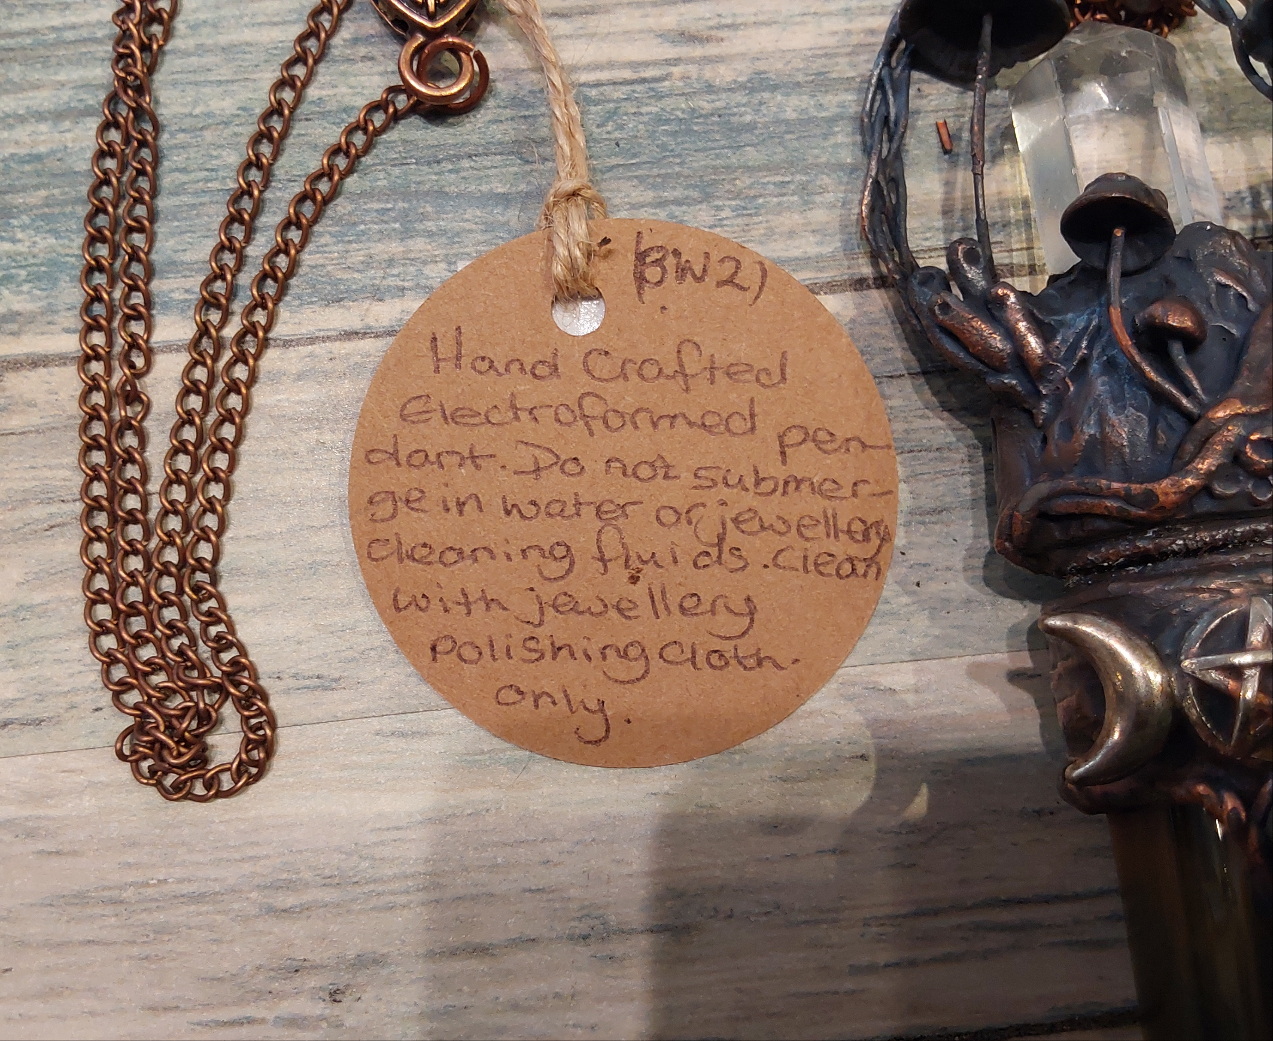 (BW2)
Hand Crafted
Electroformed pen-
dant. Do not submer-
ge in water or jewellery
cleaning fluids. Clean
with jewellery
Polishing cloth.
only.